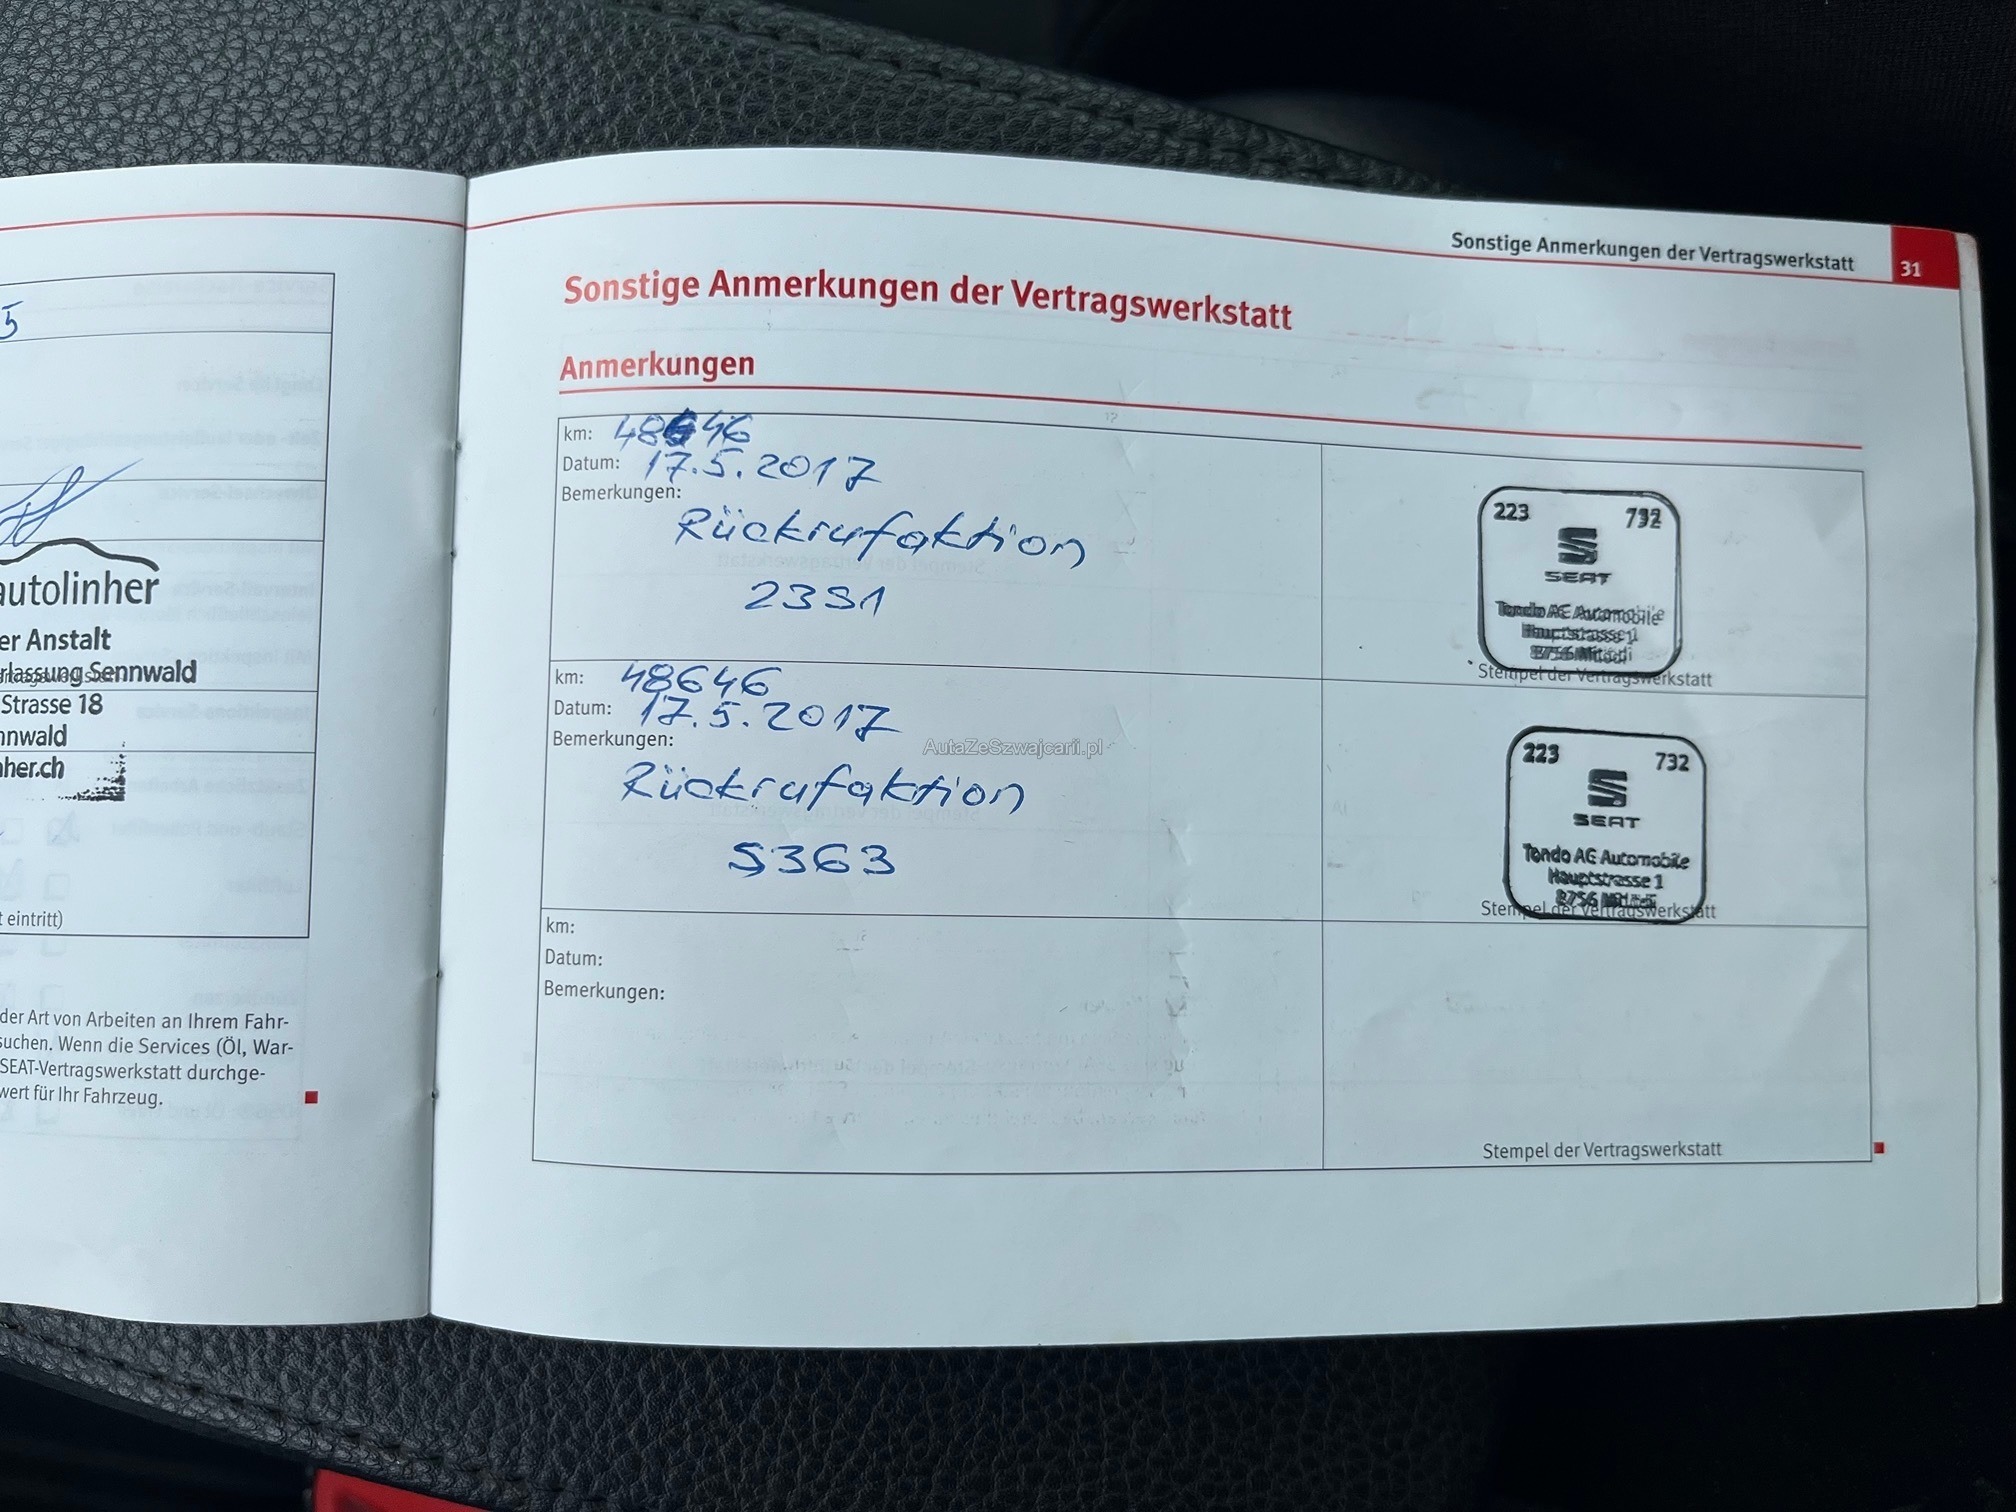 5
autolinher
er Anstalt
rlassung Sennwald
Strasse 18
nnwald
nher.ch
t eintritt)
der Art von Arbeiten an Ihrem Fahr-
suchen. Wenn die Services (Öl, War-
SEAT-Vertragswerkstatt durchge-
wert für Ihr Fahrzeug.
Sonstige Anmerkungen der Vertragswerkstatt
31
Sonstige Anmerkungen der Vertragswerkstatt
Anmerkungen
km: 48646
Datum: 17.5.2017
Bemerkungen:
Rückrufaktion
23S1
223 732
SEAT
Tondo AG Automobile
Hauptstrasse 1
8756 Mitlödi
Stempel der Vertragswerkstatt
km: 48646
Datum: 17.5.2017
Bemerkungen:
Rückrufaktion
5363
223 732
SEAT
Tondo AG Automobile
Hauptstrasse 1
8756 Mitlödi
Stempel der Vertragswerkstatt
km:
Datum:
Bemerkungen:
Stempel der Vertragswerkstatt
AutaZeSzwajcarii.pl